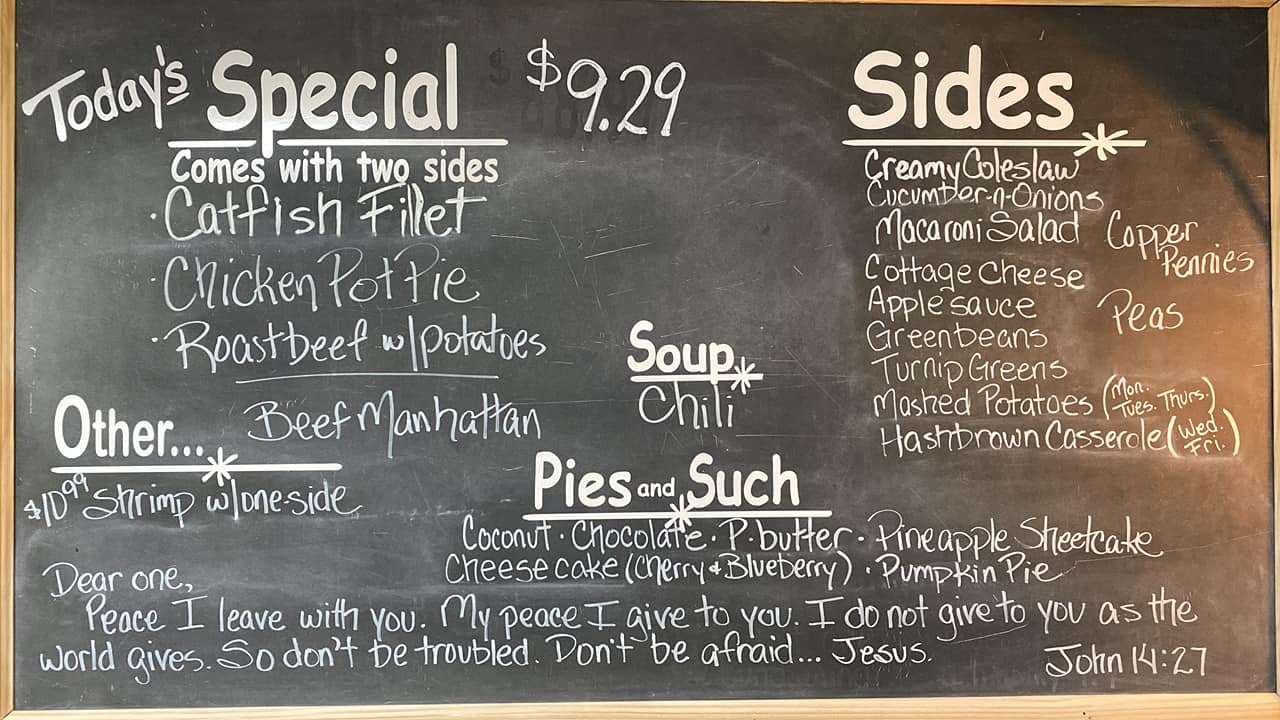 Today's Special $9.29
Comes with two sides
· Catfish Fillet
· Chicken Pot Pie
· Roastbeef w/potatoes
Beef Manhattan
Other...
$10.99 Shrimp w/one-side
Soup
Chili
Sides
Creamy Coleslaw
Cucumber-n-Onions
Macaroni Salad
Cottage Cheese
Applesauce
Greenbeans
Turnip Greens
Mashed Potatoes (Mon. Tues. Thurs.)
Hashbrown Casserole (Wed. Fri.)
Copper
Pennies
Peas
Pies and Such
Coconut · Chocolate · P-butter · Pineapple Sheetcake
Cheesecake (Cherry + Blueberry) · Pumpkin Pie
Dear one,
Peace I leave with you. My peace I give to you. I do not give to you as the
world gives. So don't be troubled. Don't be afraid... Jesus.
John 14:27